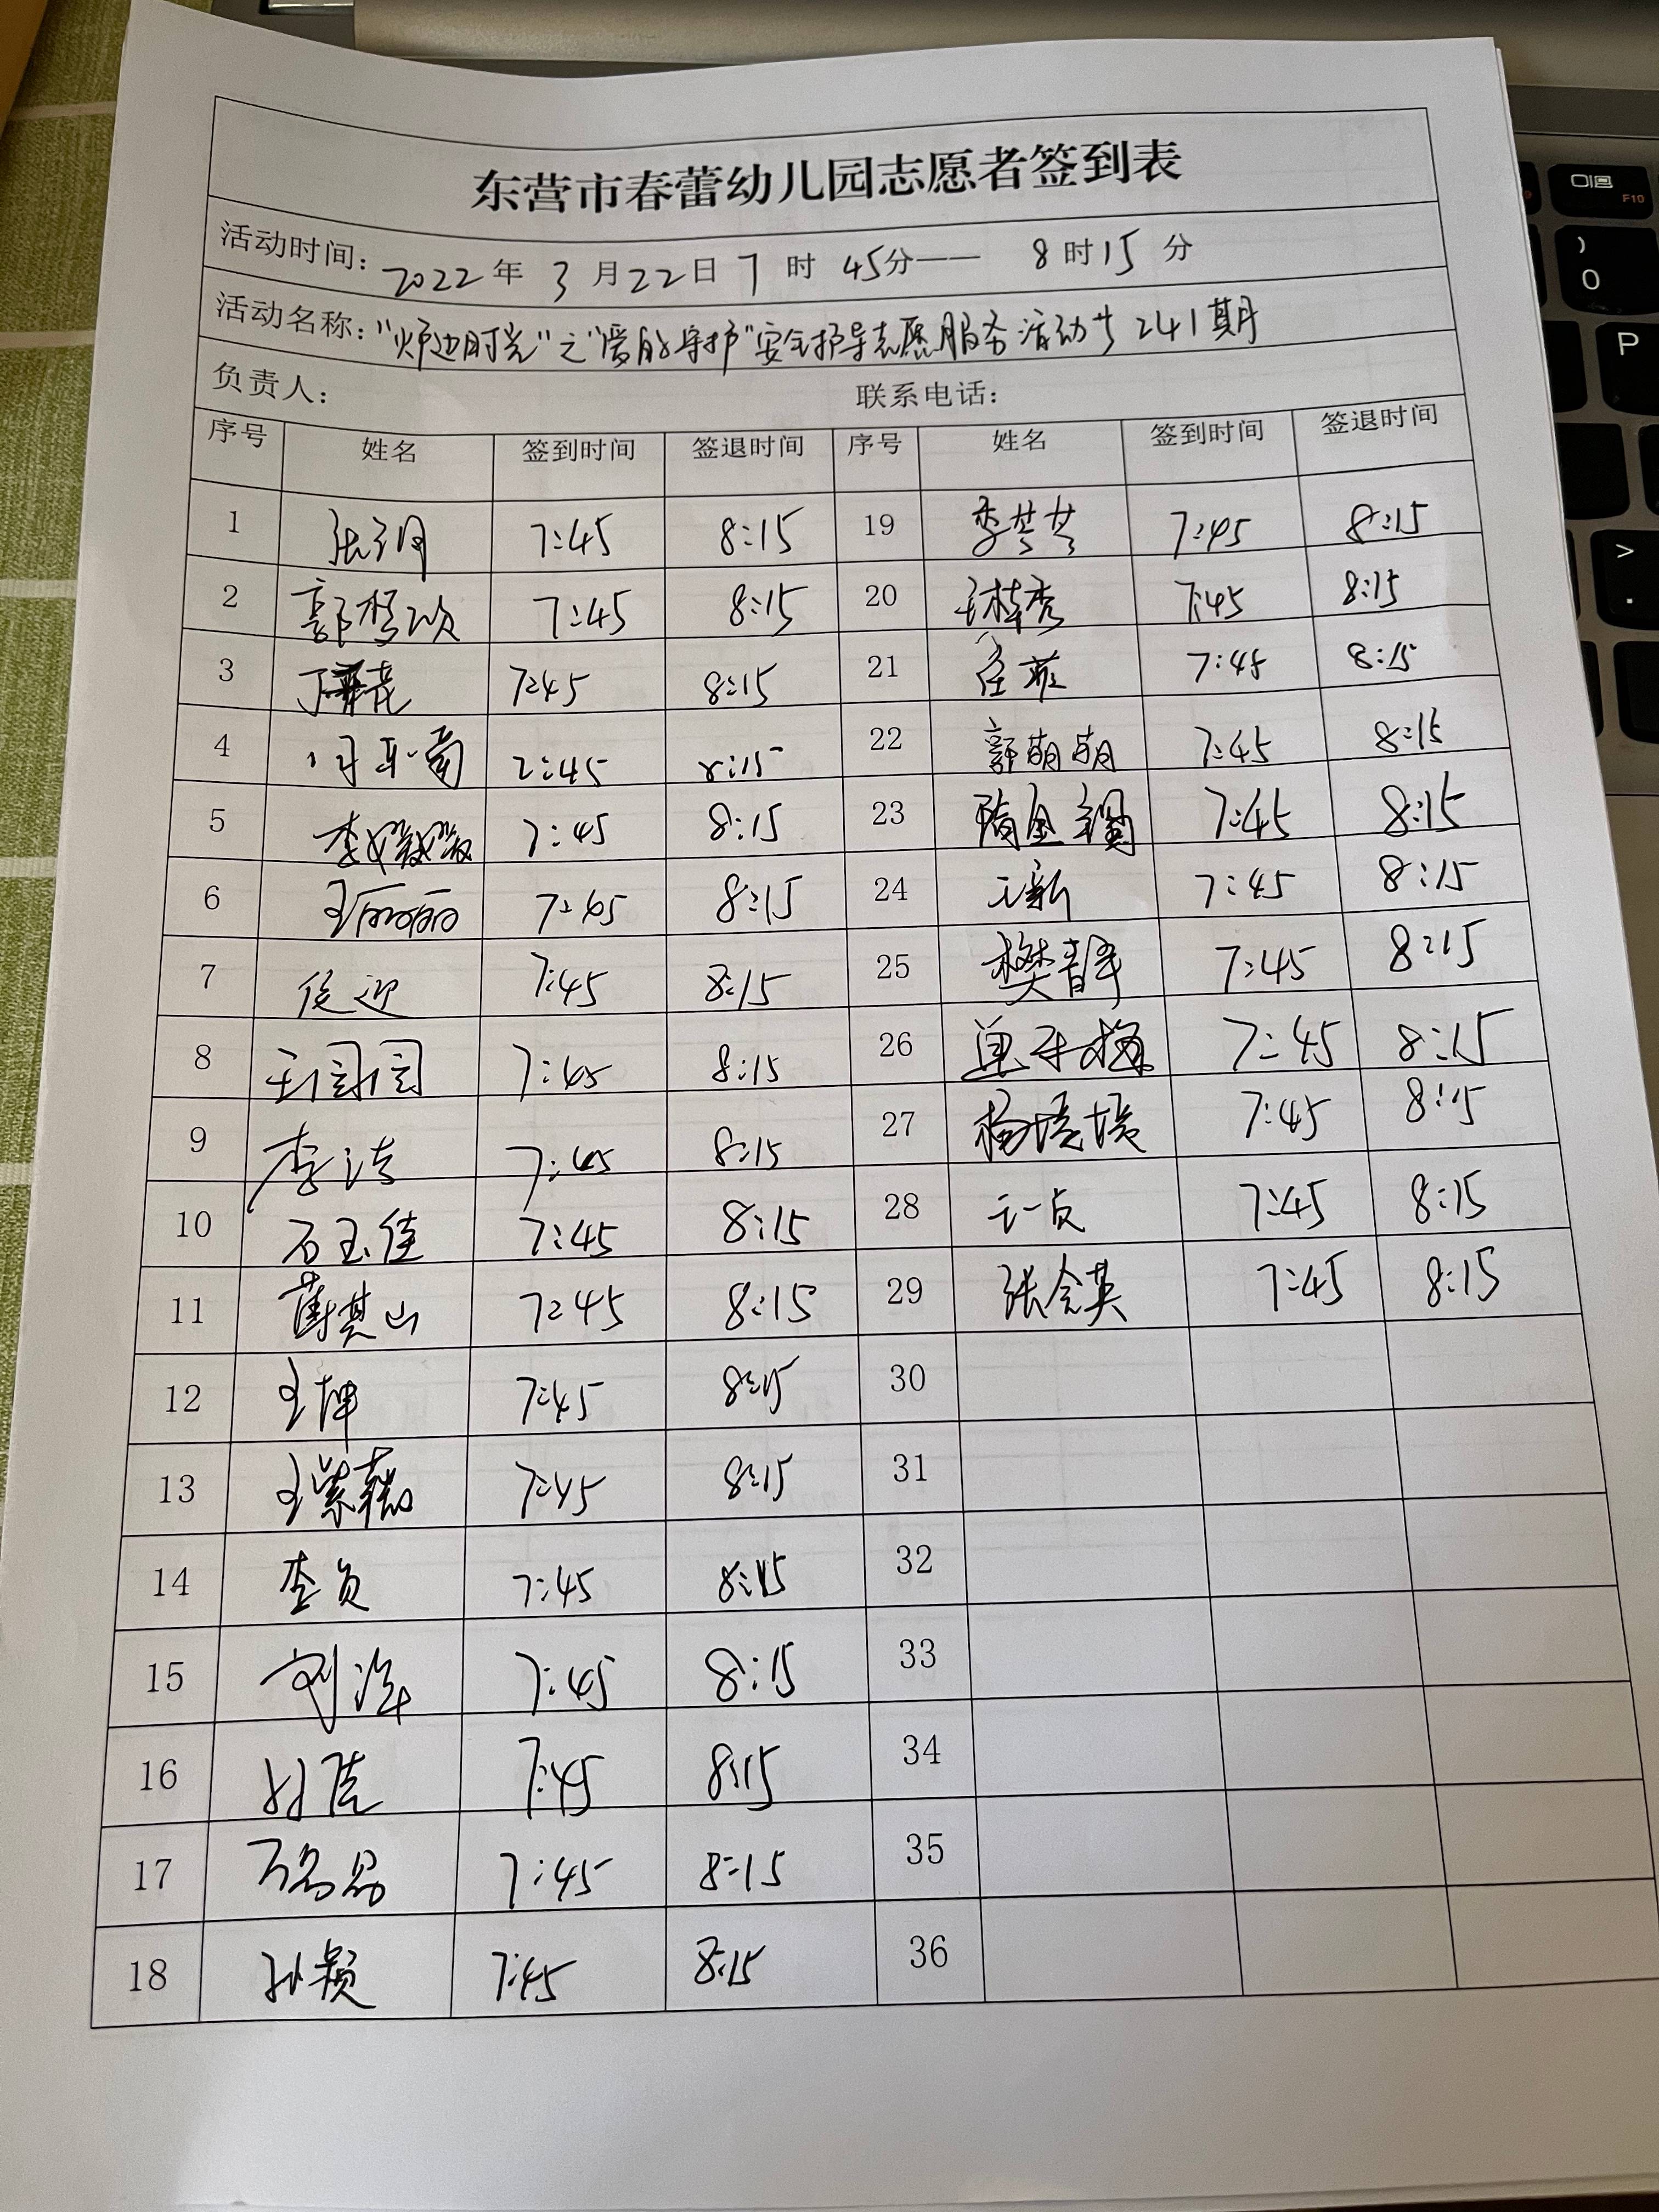 东营市春蕾幼儿园志愿者签到表
活动时间: 2022年 3月22日7时 45分—— 8时15分
活动名称: "炉边时光"之"爱的守护"安全护导志愿服务活动第241期
负责人: 联系电话:
序号 姓名 签到时间 签退时间 序号 姓名 签到时间 签退时间
1 7:45 8:15 19 李芸芸 7:45 8:15
2 7:45 8:15 20 7:45 8:15
3 7:45 8:15 21 任菲 7:45 8:15
4 8:15 22 郭萌萌 7:45 8:15
5 李媺媺 7:45 8:15 23 7:45 8:15
6 王丽丽 7:45 8:15 24 王新 7:45 8:15
7 7:45 8:15 25 樊静 7:45 8:15
8 王园园 7:45 8:15 26 7:45 8:15
9 李洁 7:45 8:15 27 7:45 8:15
10 石玉佳 7:45 8:15 28 7:45 8:15
11 7:45 8:15 29 张会英 7:45 8:15
12 王坤 7:45 8:15 30
13 王紫薇 7:45 8:15 31
14 7:45 8:15 32
15 刘萍 7:45 8:15 33
16 7:45 8:15 34
17 7:45 8:15 35
18 孙颖 7:45 8:15 36
F10
)
0
P
>
.